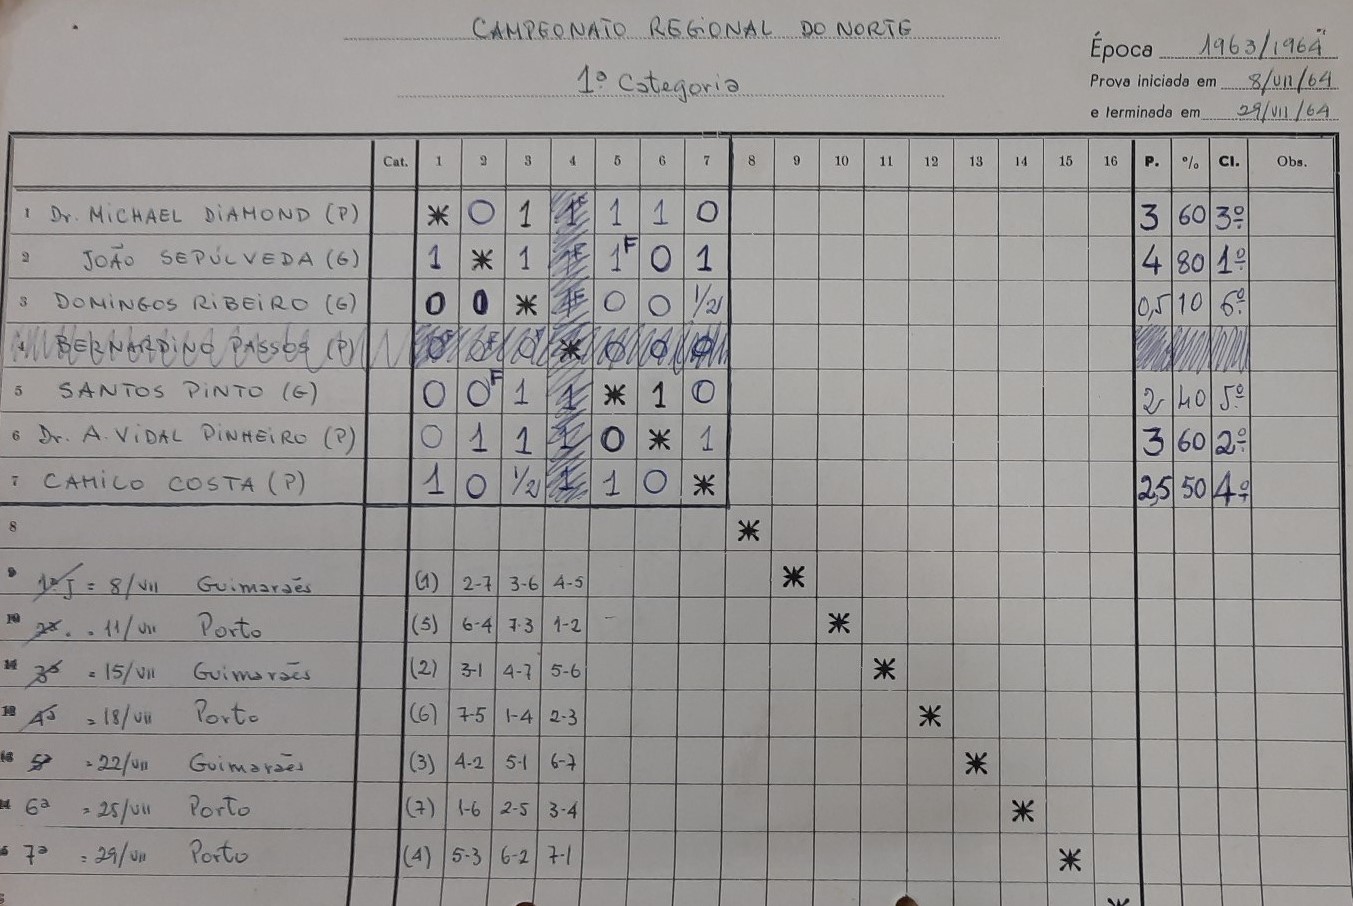 CAMPEONATO REGIONAL DO NORTE
Época 1963/1964
1ª Categoria
Prova iniciada em 8/VII/64
e terminada em 29/VII/64
Cat. 1 2 3 4 5 6 7 8 9 10 11 12 13 14 15 16 P. % Cl. Obs.
1 Dr. MICHAEL DIAMOND (P) * 0 1 1F 1 1 0 3 60 3º
2 JOÃO SEPÚLVEDA (G) 1 * 1 1F 1F 0 1 4 80 1º
3 DOMINGOS RIBEIRO (G) 0 0 * 1F 0 0 1/2 0,5 10 6º
4 BERNARDINO PASSOS (P) 0F 0F 0F * 0 0 0
5 SANTOS PINTO (G) 0 0F 1 1 * 1 0 2 40 5º
6 Dr. A. VIDAL PINHEIRO (P) 0 1 1 1 0 * 1 3 60 2º
7 CAMILO COSTA (P) 1 0 1/2 1 1 0 * 2,5 50 4º
8 *
9 1ª J = 8/VII Guimarães (1) 2-7 3-6 4-5 *
10 2ª = 11/VII Porto (5) 6-4 7-3 1-2 *
11 3ª = 15/VII Guimarães (2) 3-1 4-7 5-6 *
12 4ª = 18/VII Porto (6) 7-5 1-4 2-3 *
13 5ª = 22/VII Guimarães (3) 4-2 5-1 6-7 *
14 6ª = 25/VII Porto (7) 1-6 2-5 3-4 *
7ª = 29/VII Porto (4) 5-3 6-2 7-1 *